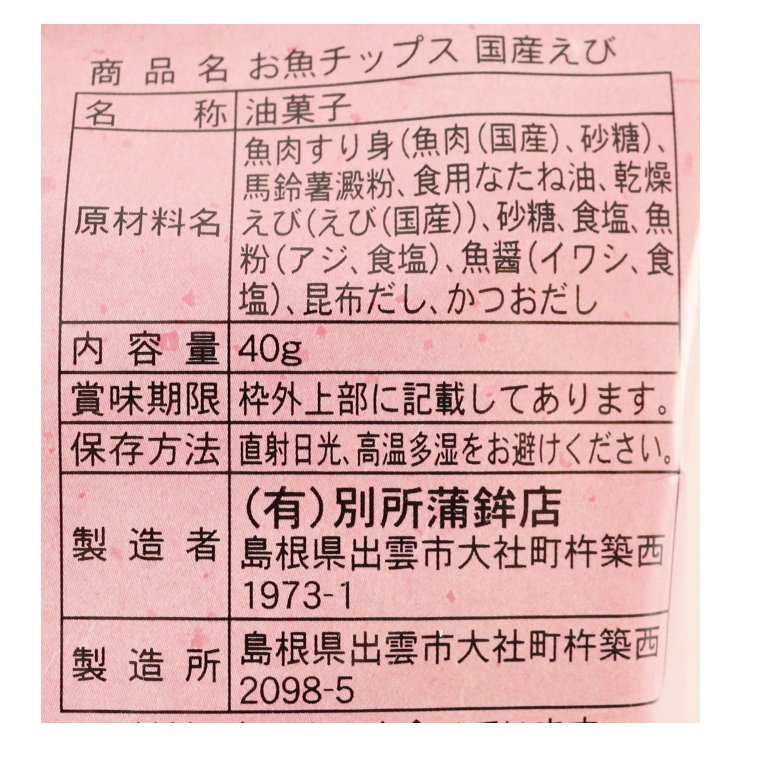 商品名 お魚チップス 国産えび
名称 油菓子
原材料名 魚肉すり身(魚肉(国産)、砂糖)、
馬鈴薯澱粉、食用なたね油、乾燥
えび(えび(国産))、砂糖、食塩、魚
粉(アジ、食塩)、魚醤(イワシ、食
塩)、昆布だし、かつおだし
内容量 40g
賞味期限 枠外上部に記載してあります。
保存方法 直射日光、高温多湿をお避けください。
製造者 (有)別所蒲鉾店
島根県出雲市大社町杵築西
1973-1
製造所 島根県出雲市大社町杵築西
2098-5